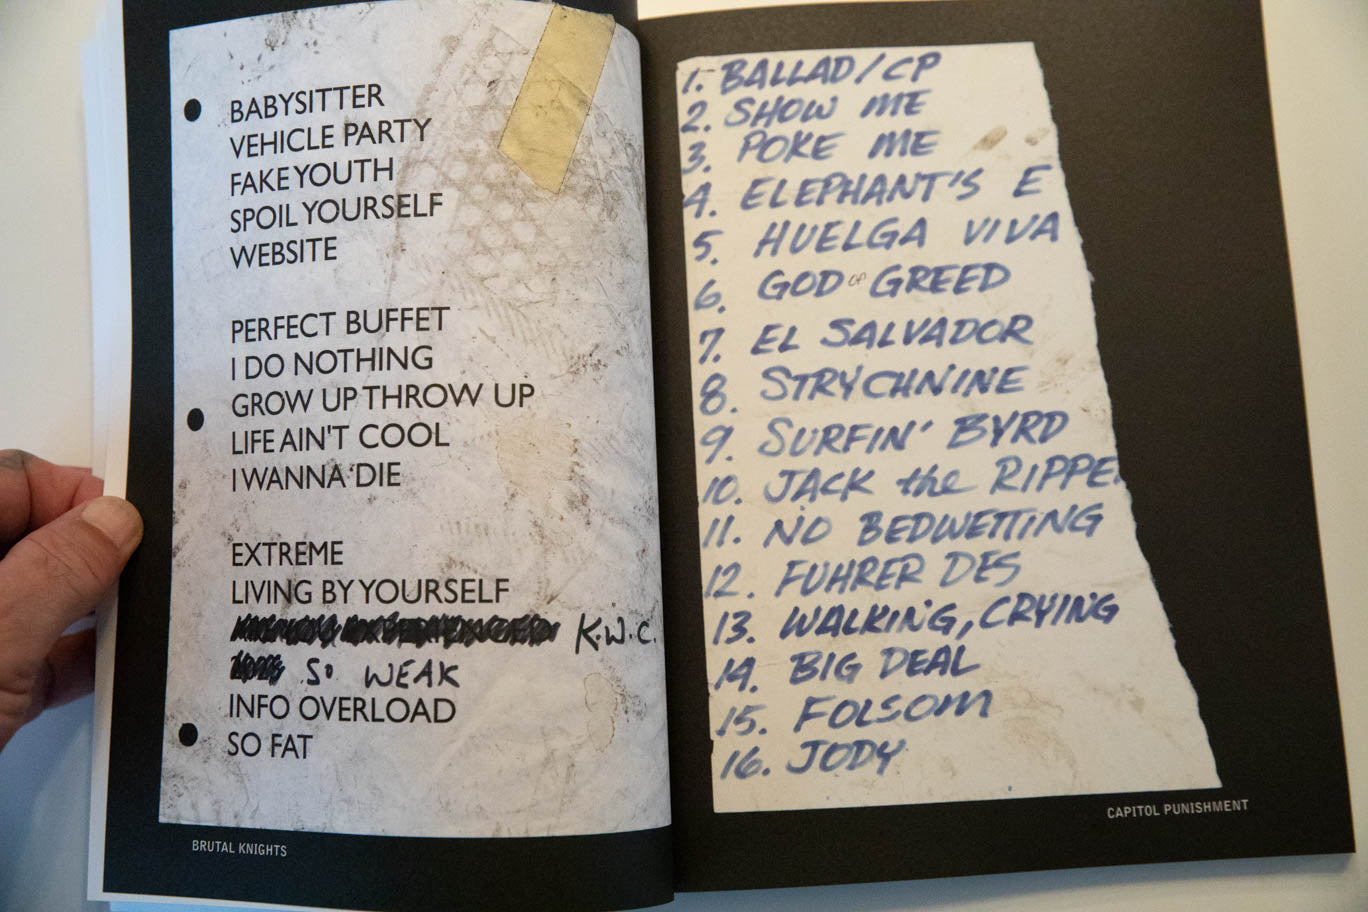 BABYSITTER
VEHICLE PARTY
FAKE YOUTH
SPOIL YOURSELF
WEBSITE
PERFECT BUFFET
I DO NOTHING
GROW UP THROW UP
LIFE AIN'T COOL
I WANNA DIE
EXTREME
LIVING BY YOURSELF
K.W.C.
SO WEAK
INFO OVERLOAD
SO FAT
BRUTAL KNIGHTS
1. BALLAD/CP
2. SHOW ME
3. POKE ME
4. ELEPHANT'S E
5. HUELGA VIVA
6. GOD OF GREED
7. EL SALVADOR
8. STRYCHNINE
9. SURFIN' BYRD
10. JACK the RIPPE
11. NO BEDWETTING
12. FUHRER DES
13. WALKING, CRYING
14. BIG DEAL
15. FOLSOM
16. JODY
CAPITOL PUNISHMENT